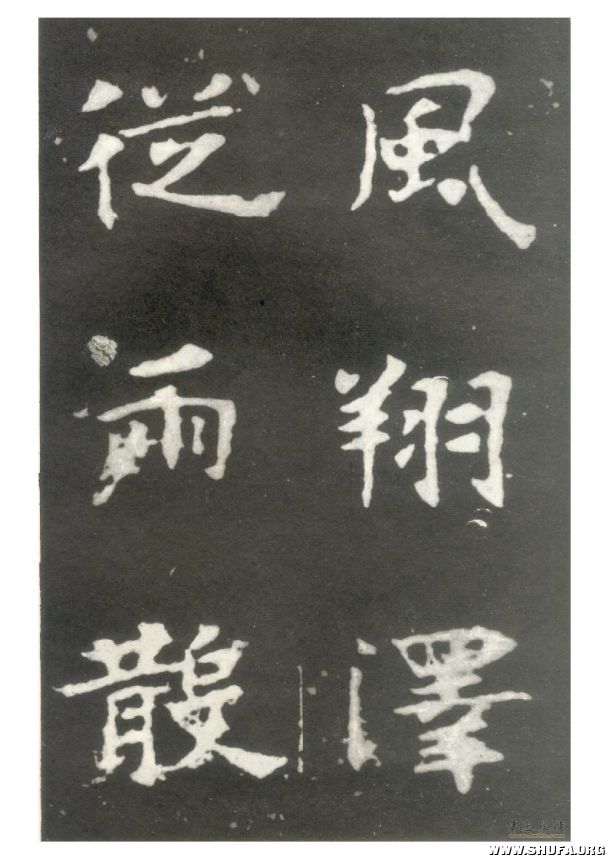 風翔澤
從雨散
WWW.SHUFA.ORG